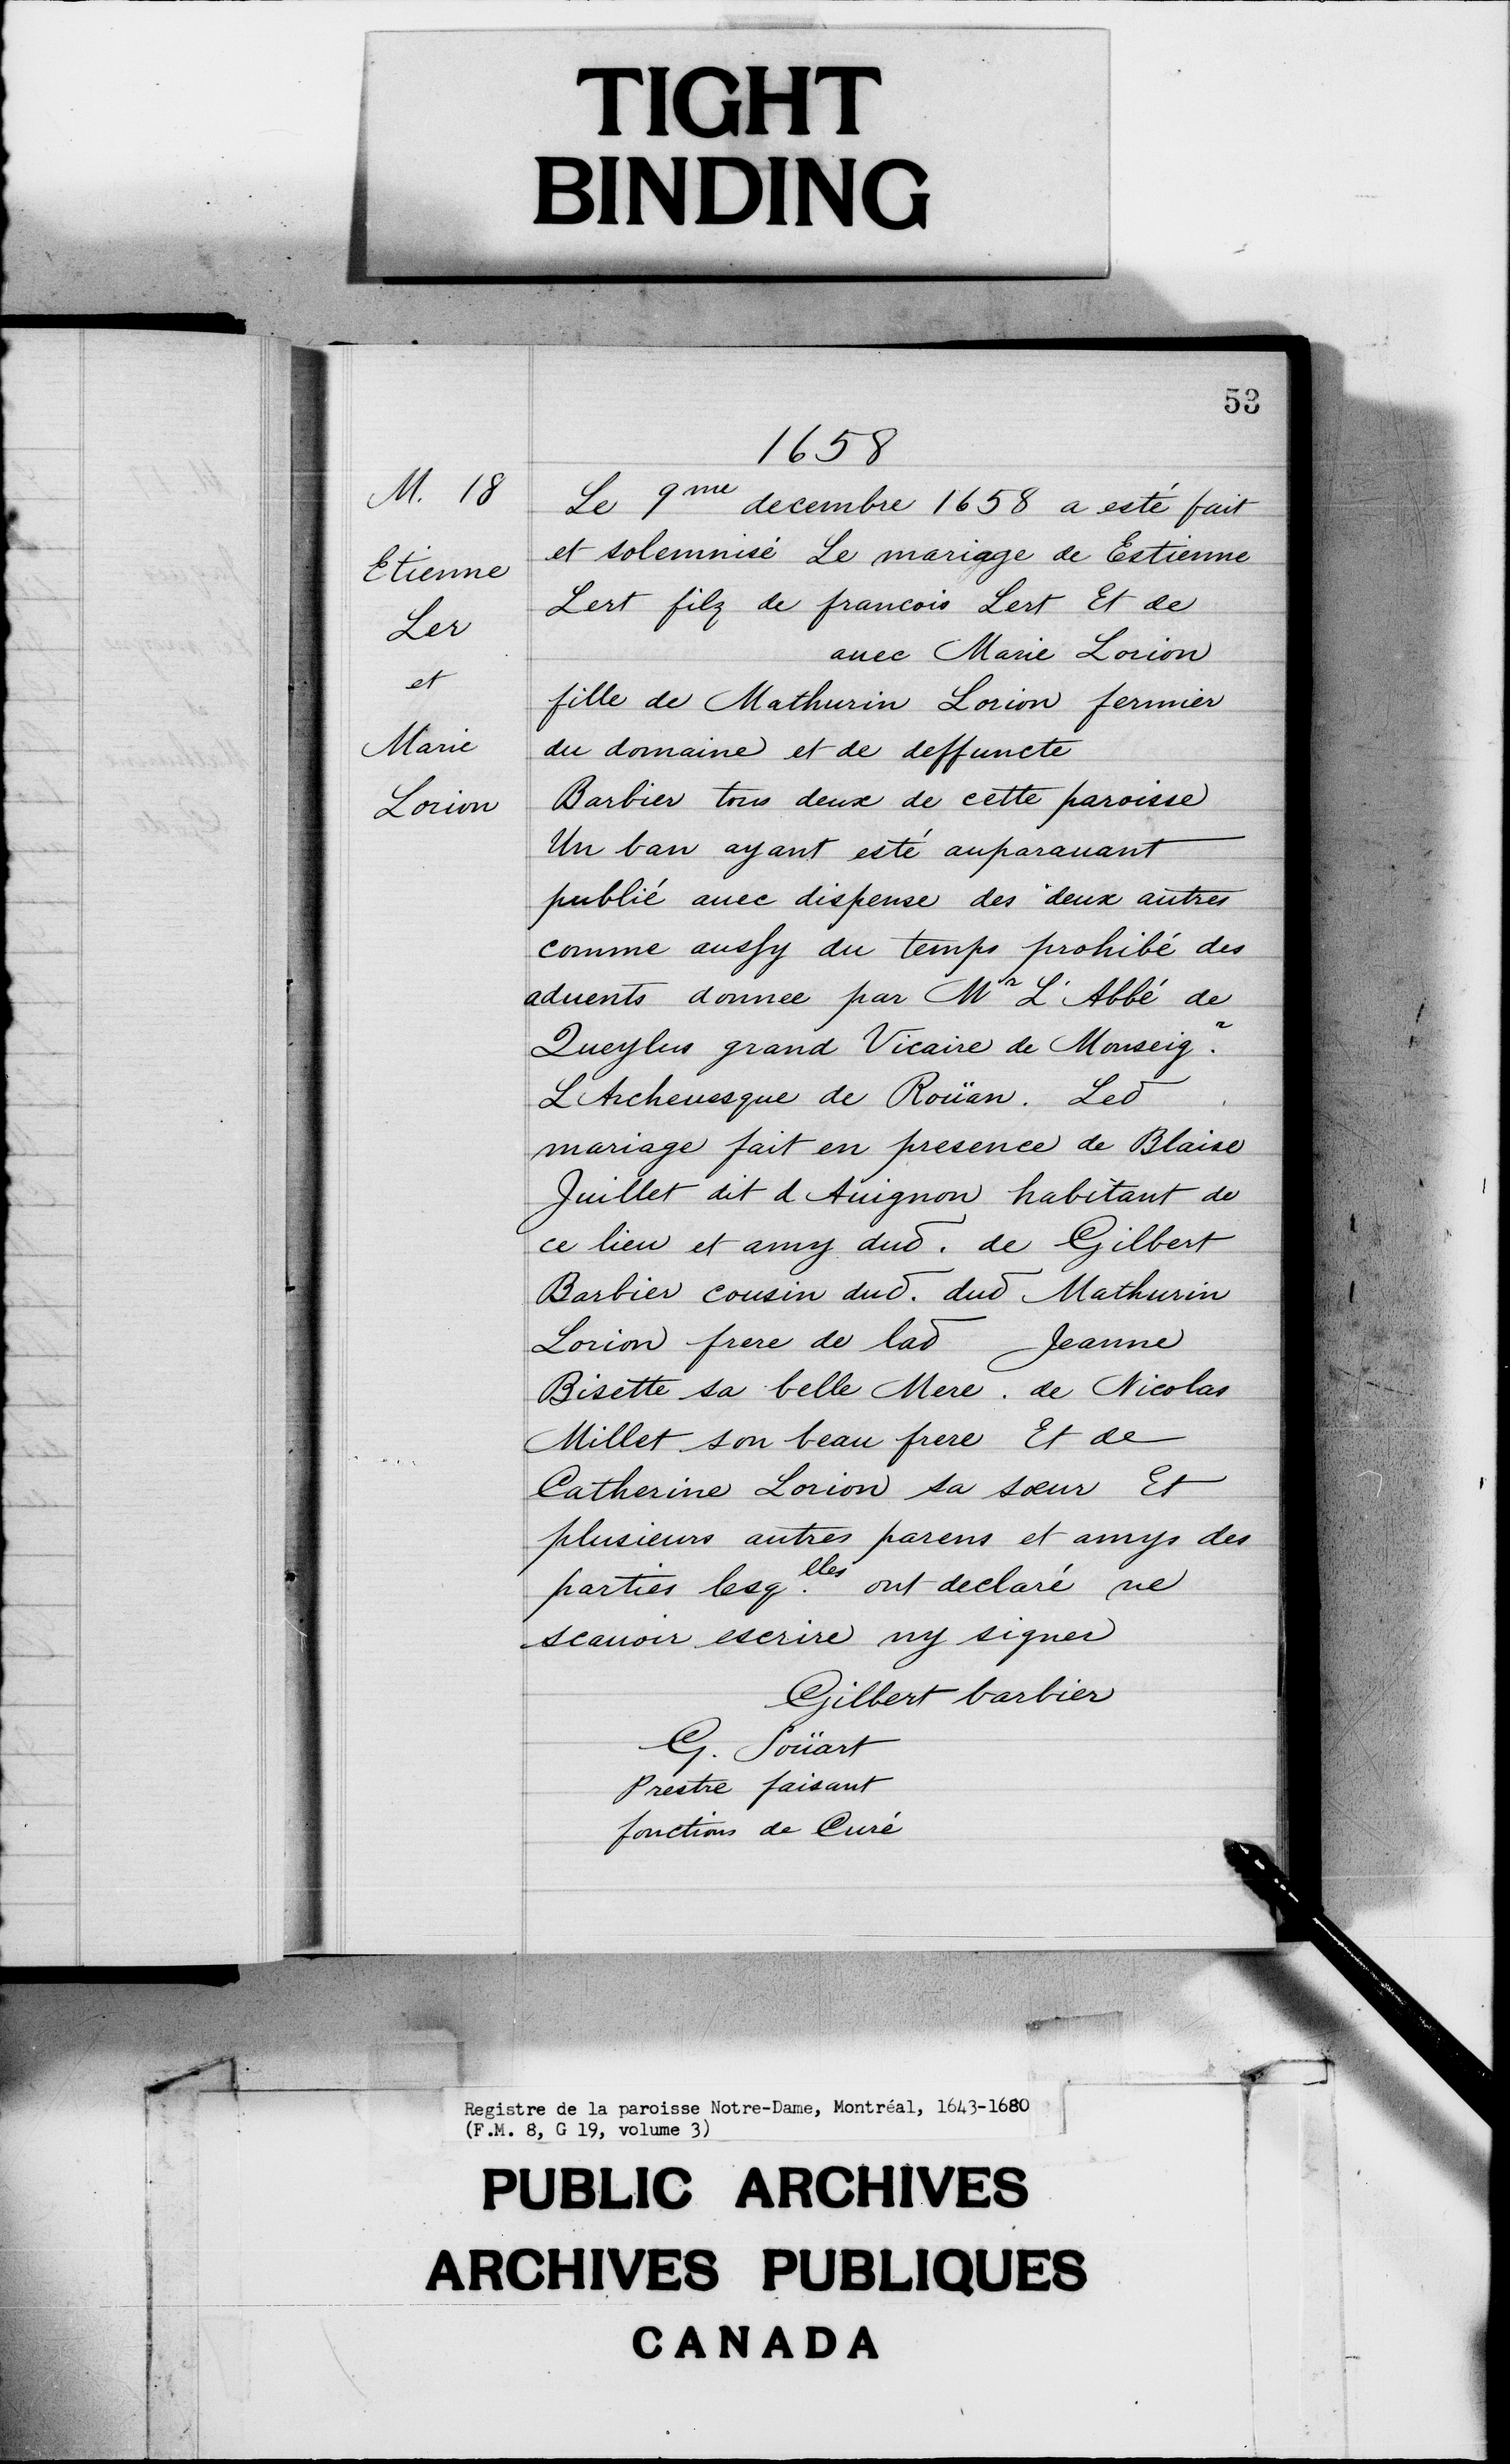 TIGHT
BINDING
53
1658
M. 18
Etienne
Ler
et
Marie
Lorion
Le 9me decembre 1658 a esté fait
et solemnisé Le mariage de Estienne
Lert filz de francois Lert Et de
auec Marie Lorion
fille de Mathurin Lorion fermier
du domaine et de deffuncte
Barbier tous deux de cette paroisse
Un ban ayant esté auparauant
publié auec dispense des deux autres
comme aussy du temps prohibé des
aduents donnee par Mr L'Abbé de
Queylus grand Vicaire de Monseigr.
L Archeuesque de Roüan. Led
mariage fait en presence de Blaise
Juillet dit d Auignon habitant de
ce lieu et amy dud. de Gilbert
Barbier cousin dud. dud Mathurin
Lorion frere de lad Jeanne
Bisette sa belle Mere. de Nicolas
Millet son beau frere Et de
Catherine Lorion sa sœur Et
plusieurs autres parens et amys des
parties lesq.lles ont declaré ne
scauoir escrire ny signer
Gilbert barbier
G. Soüart
Prestre faisant
fonctions de Curé
Registre de la paroisse Notre-Dame, Montréal, 1643-1680
(F.M. 8, G 19, volume 3)
PUBLIC ARCHIVES
ARCHIVES PUBLIQUES
CANADA